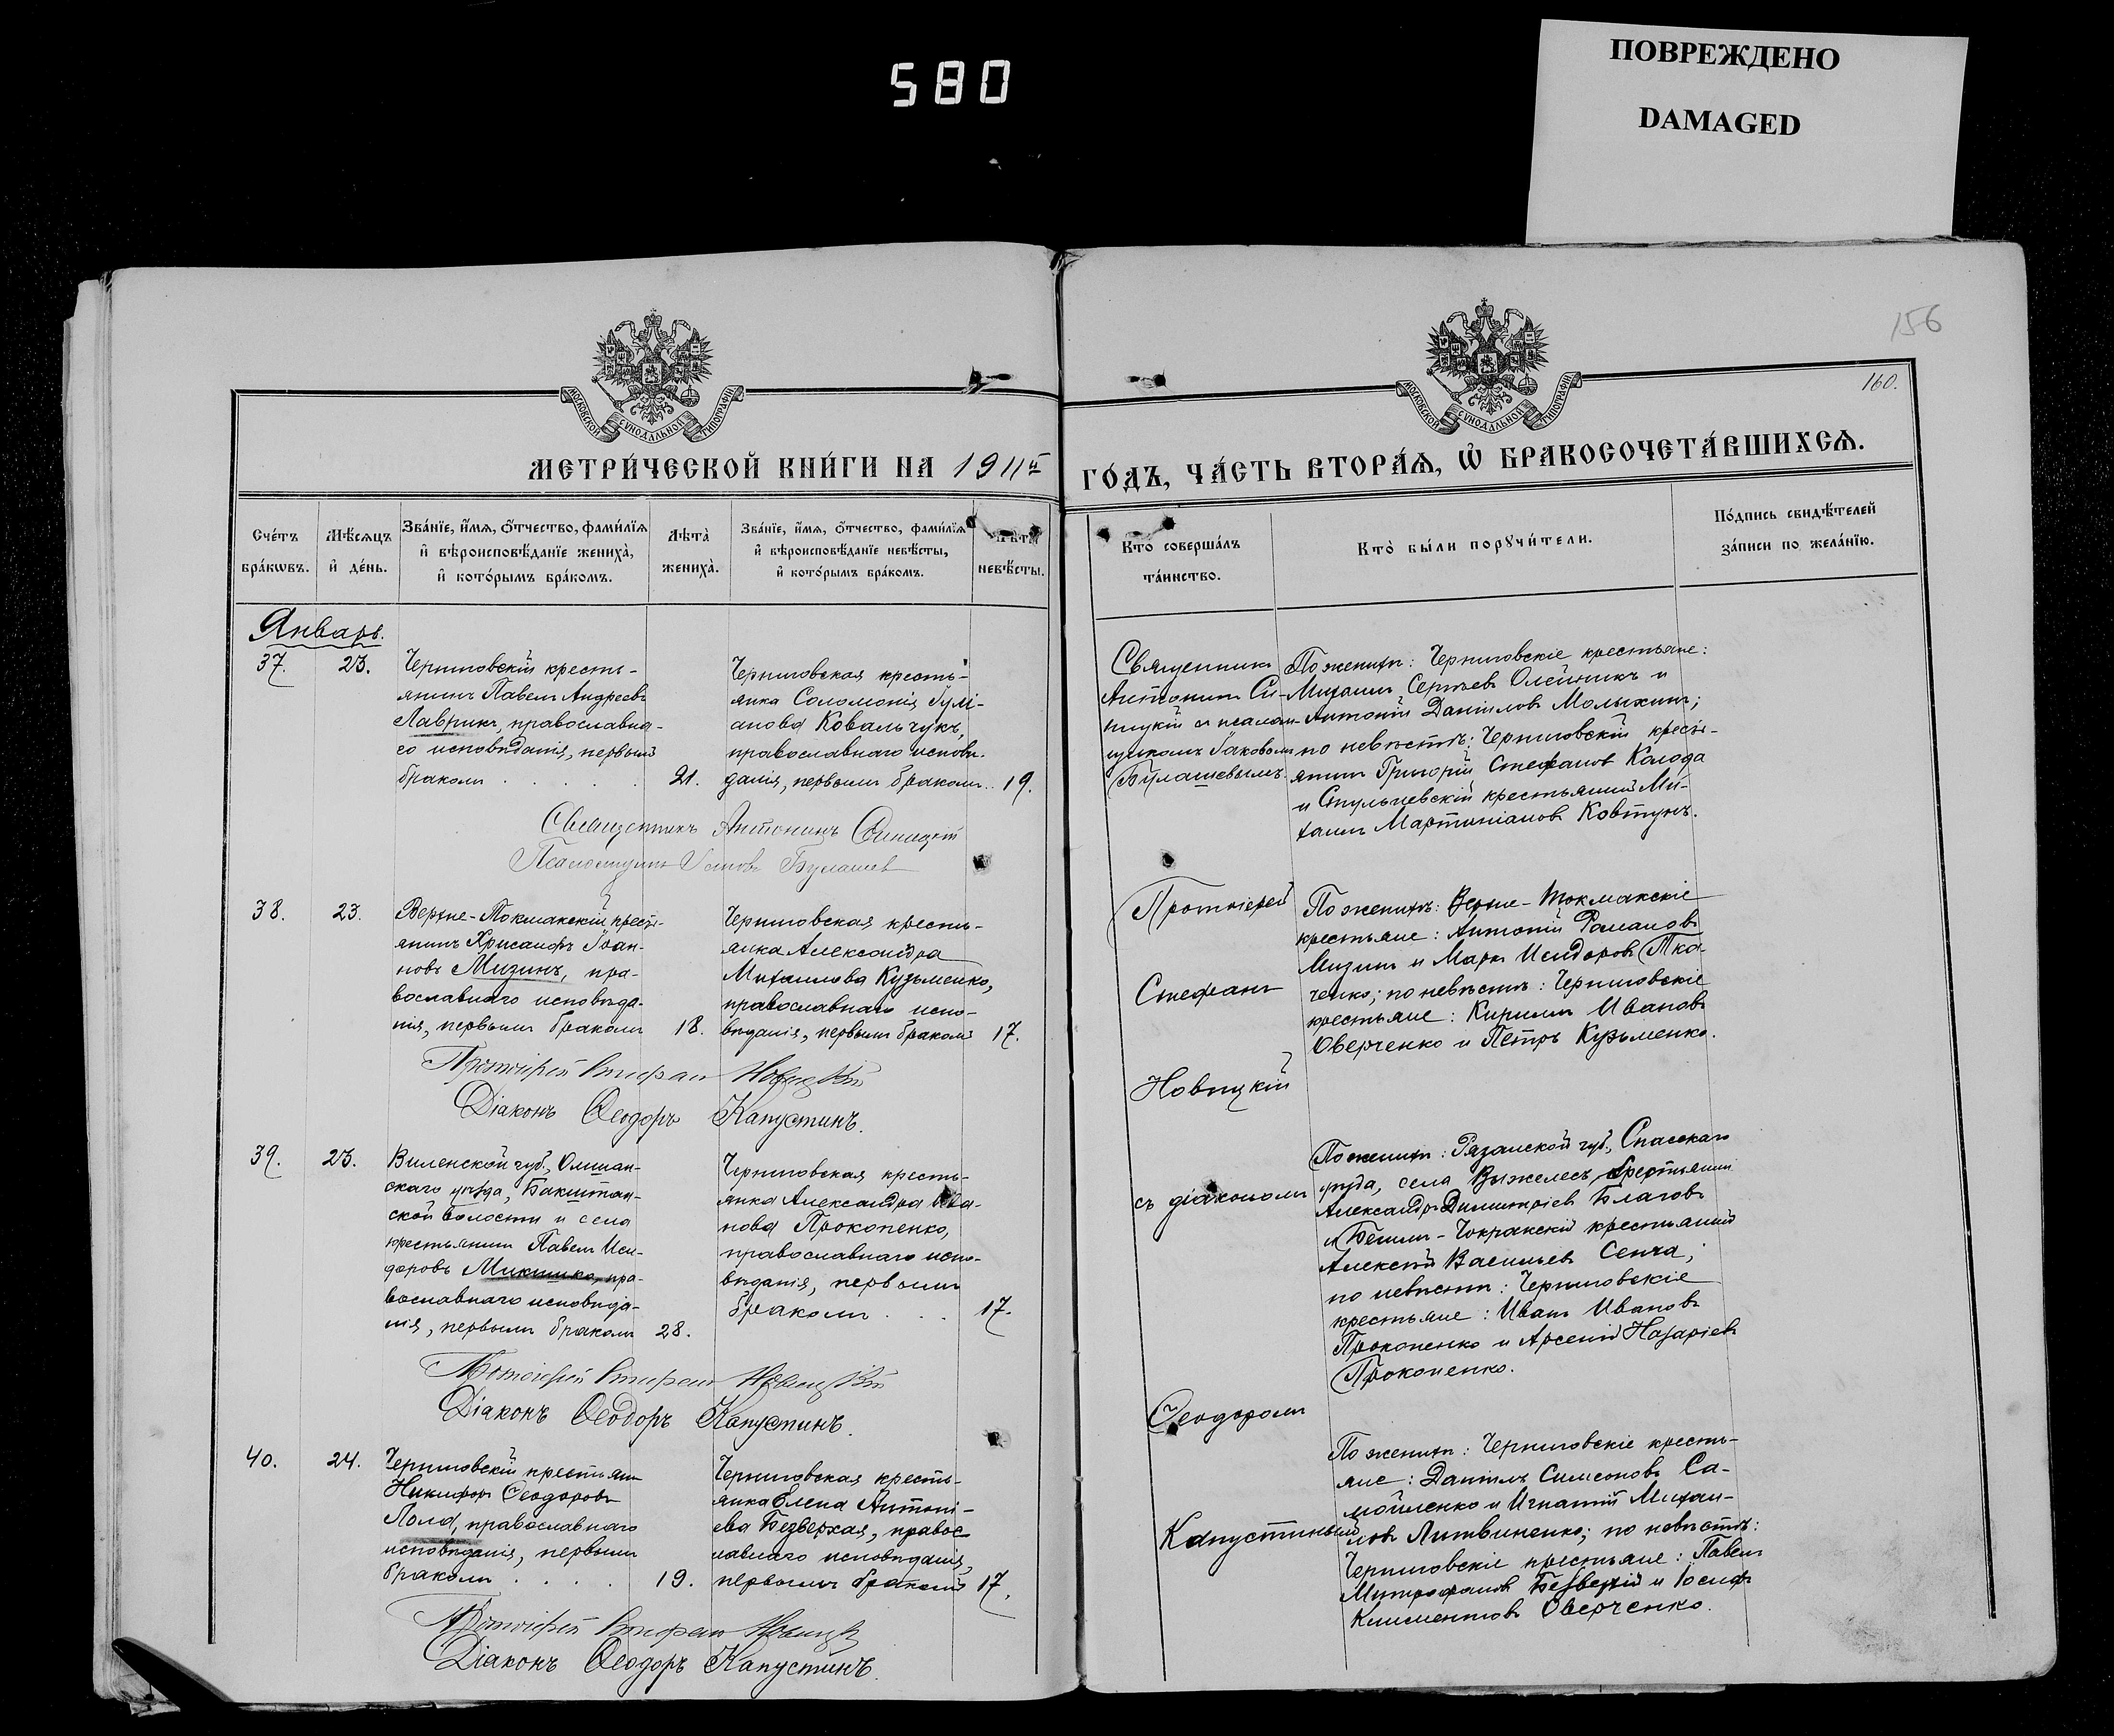 580
ПОВРЕЖДЕНО
DAMAGED
156
160.
МОСКОВСКОЙ СУНОДАЛЬНОЙ ТИПОГРАФІИ
МОСКОВСКОЙ СУНОДАЛЬНОЙ ТИПОГРАФІИ
МЕТРИ́ЧЕСКОЙ КНИ́ГИ НА 1911й
ГО́ДЪ, ЧА́СТЬ ВТОРА́Я, Ѽ БРАКОСОЧЕТА́ВШИХСѦ.
Сче́тъ бра́кѡвъ.
Мѣ́сѧцъ и҆ де́нь.
Зва́нїе, и҆́мѧ, ѻ҆́тчество, фами́лїѧ
и҆ вѣроисповѣ́данїе жениха̀,
и҆ кото́рымъ бра́комъ.
Лѣ́та̀ жениха̀.
Зва́нїе, и҆́мѧ, ѻ҆́тчество, фами́лїѧ
и҆ вѣроисповѣ́данїе невѣ́сты,
и҆ кото́рымъ бра́комъ.
невѣ́сты.
Кто̀ соверша́лъ
та́инство.
Кто̀ бы́ли порꙋчи́тели.
По́дпись свидѣ́телей
за́писи по жела́нїю.
Январь.
37.
23.
Черниговскій кресть-
янинъ Павелъ Андреевъ
Лаврикъ, православна-
го исповѣданія, первымъ
бракомъ . . . . .
21.
Черниговская кресть-
янка Соломонія Іулі-
анова Ковальчукъ,
православнаго исповѣ-
данія, первымъ бракомъ..
19.
Священникъ
Антонинъ Си-
ницкій съ псалом-
щикомъ Іаковомъ
Булашевымъ.
По женихѣ: Черниговскіе крестьяне:
Михаилъ Сергѣевъ Олейникъ и
Антоній Даніиловъ Малыхинъ;
по невѣстѣ: Черниговскій кресть-
янинъ Григорій Стефановъ Калода
и Стульневскій крестьянинъ Ми-
хаилъ Мартиніановъ Ковтунъ.
Священникъ Антонинъ Синицкій
Псаломщикъ Іаковъ Булашев
38.
23.
Верхне-Токмакскій кресть-
янинъ Хрисанфъ Іоан-
новъ Мизинъ, пра-
вославнаго исповѣда-
нія, первымъ бракомъ
18.
Черниговская кресть-
янка Александра
Михаилова Кузьменко,
православнаго испо-
вѣданія, первымъ бракомъ
17.
Протоіерей
Стефанъ
Новицкій
По женихѣ: Верхне-Токмакскіе
крестьяне: Антоній Романовъ
Мизинъ и Маркъ Исидоровъ Тка-
ченко; по невѣстѣ: Черниговскіе
крестьяне: Кириллъ Ивановъ
Оверченко и Петръ Кузьменко.
Протоіерей Стефанъ Новицкій
Діаконъ Ѳеодоръ Капустинъ.
39.
23.
Виленской губ., Ошмян-
скаго уѣзда, Бакштан-
ской волости и села
крестьянинъ Павелъ Иси-
доровъ Микшико, пра-
вославнаго исповѣда-
нія, первымъ бракомъ
28.
Черниговская кресть-
янка Александра Ива-
нова Прокопенко,
православнаго испо-
вѣданія, первымъ
бракомъ . . .
17.
съ діакономъ
Ѳеодоромъ
По женихѣ: Рязанской губ., Спасскаго
уѣзда, села Выжелесъ, крестьянинъ
Александръ Димитріевъ Благовъ
и Бешли-Чокракскій крестьянинъ
Алексѣй Васильевъ Сенча;
по невѣстѣ: Черниговскіе
крестьяне: Иванъ Ивановъ
Прокопенко и Арсеній Назаріевъ
Прокопенко.
Протоіерей Стефанъ Новицкій
Діаконъ Ѳеодоръ Капустинъ.
40.
24.
Черниговскій крестьянинъ
Никифоръ Ѳеодоровъ
Лола, православнаго
исповѣданія, первымъ
бракомъ . . . .
19.
Черниговская кресть-
янка Елена Антоні-
ева Безверхая, правос-
лавнаго исповѣданія,
первымъ бракомъ
17.
Капустинымъ
По женихѣ: Черниговскіе кресть-
яне: Даніилъ Симеоновъ Са-
мойленко и Игнатій Михаи-
ловъ Литвиненко; по невѣстѣ:
Черниговскіе крестьяне: Павелъ
Митрофановъ Безверхій и Іосифъ
Климентовъ Оверченко.
Протоіерей Стефанъ Новицкій
Діаконъ Ѳеодоръ Капустинъ.